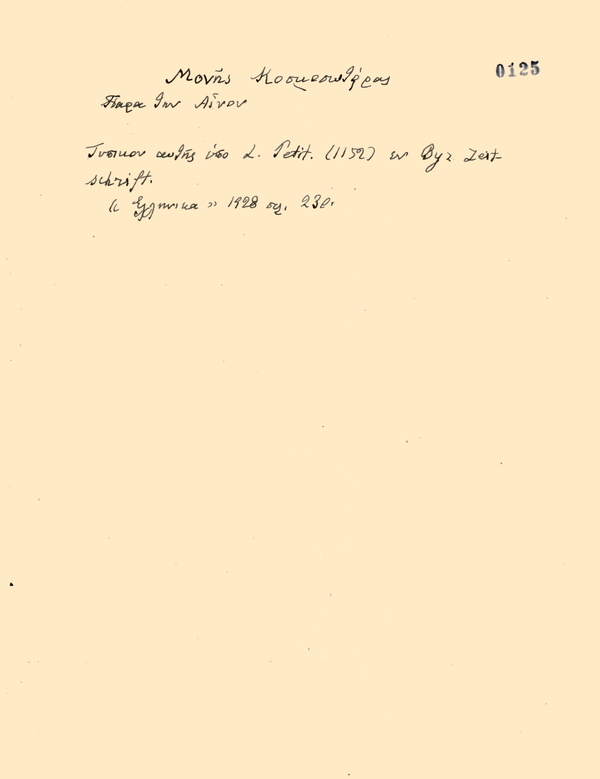 0125
Μονῆς Κοσμοσωτήρας
Παρα την Αἶνον
Τυπικον αυτῆς ὑπο L. Petit. (1152) εν Byz Zeit-
schrift.
« Ελληνικα » 1928 σελ. 232.